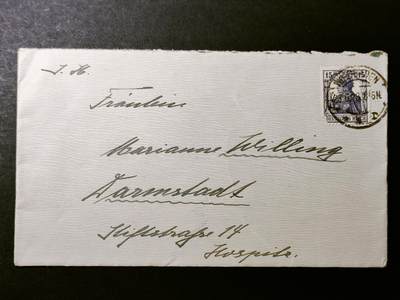 I. H.
15
Fräulein
Marianne Willing
Darmstadt
Stiftstraße 14
Hospitz.